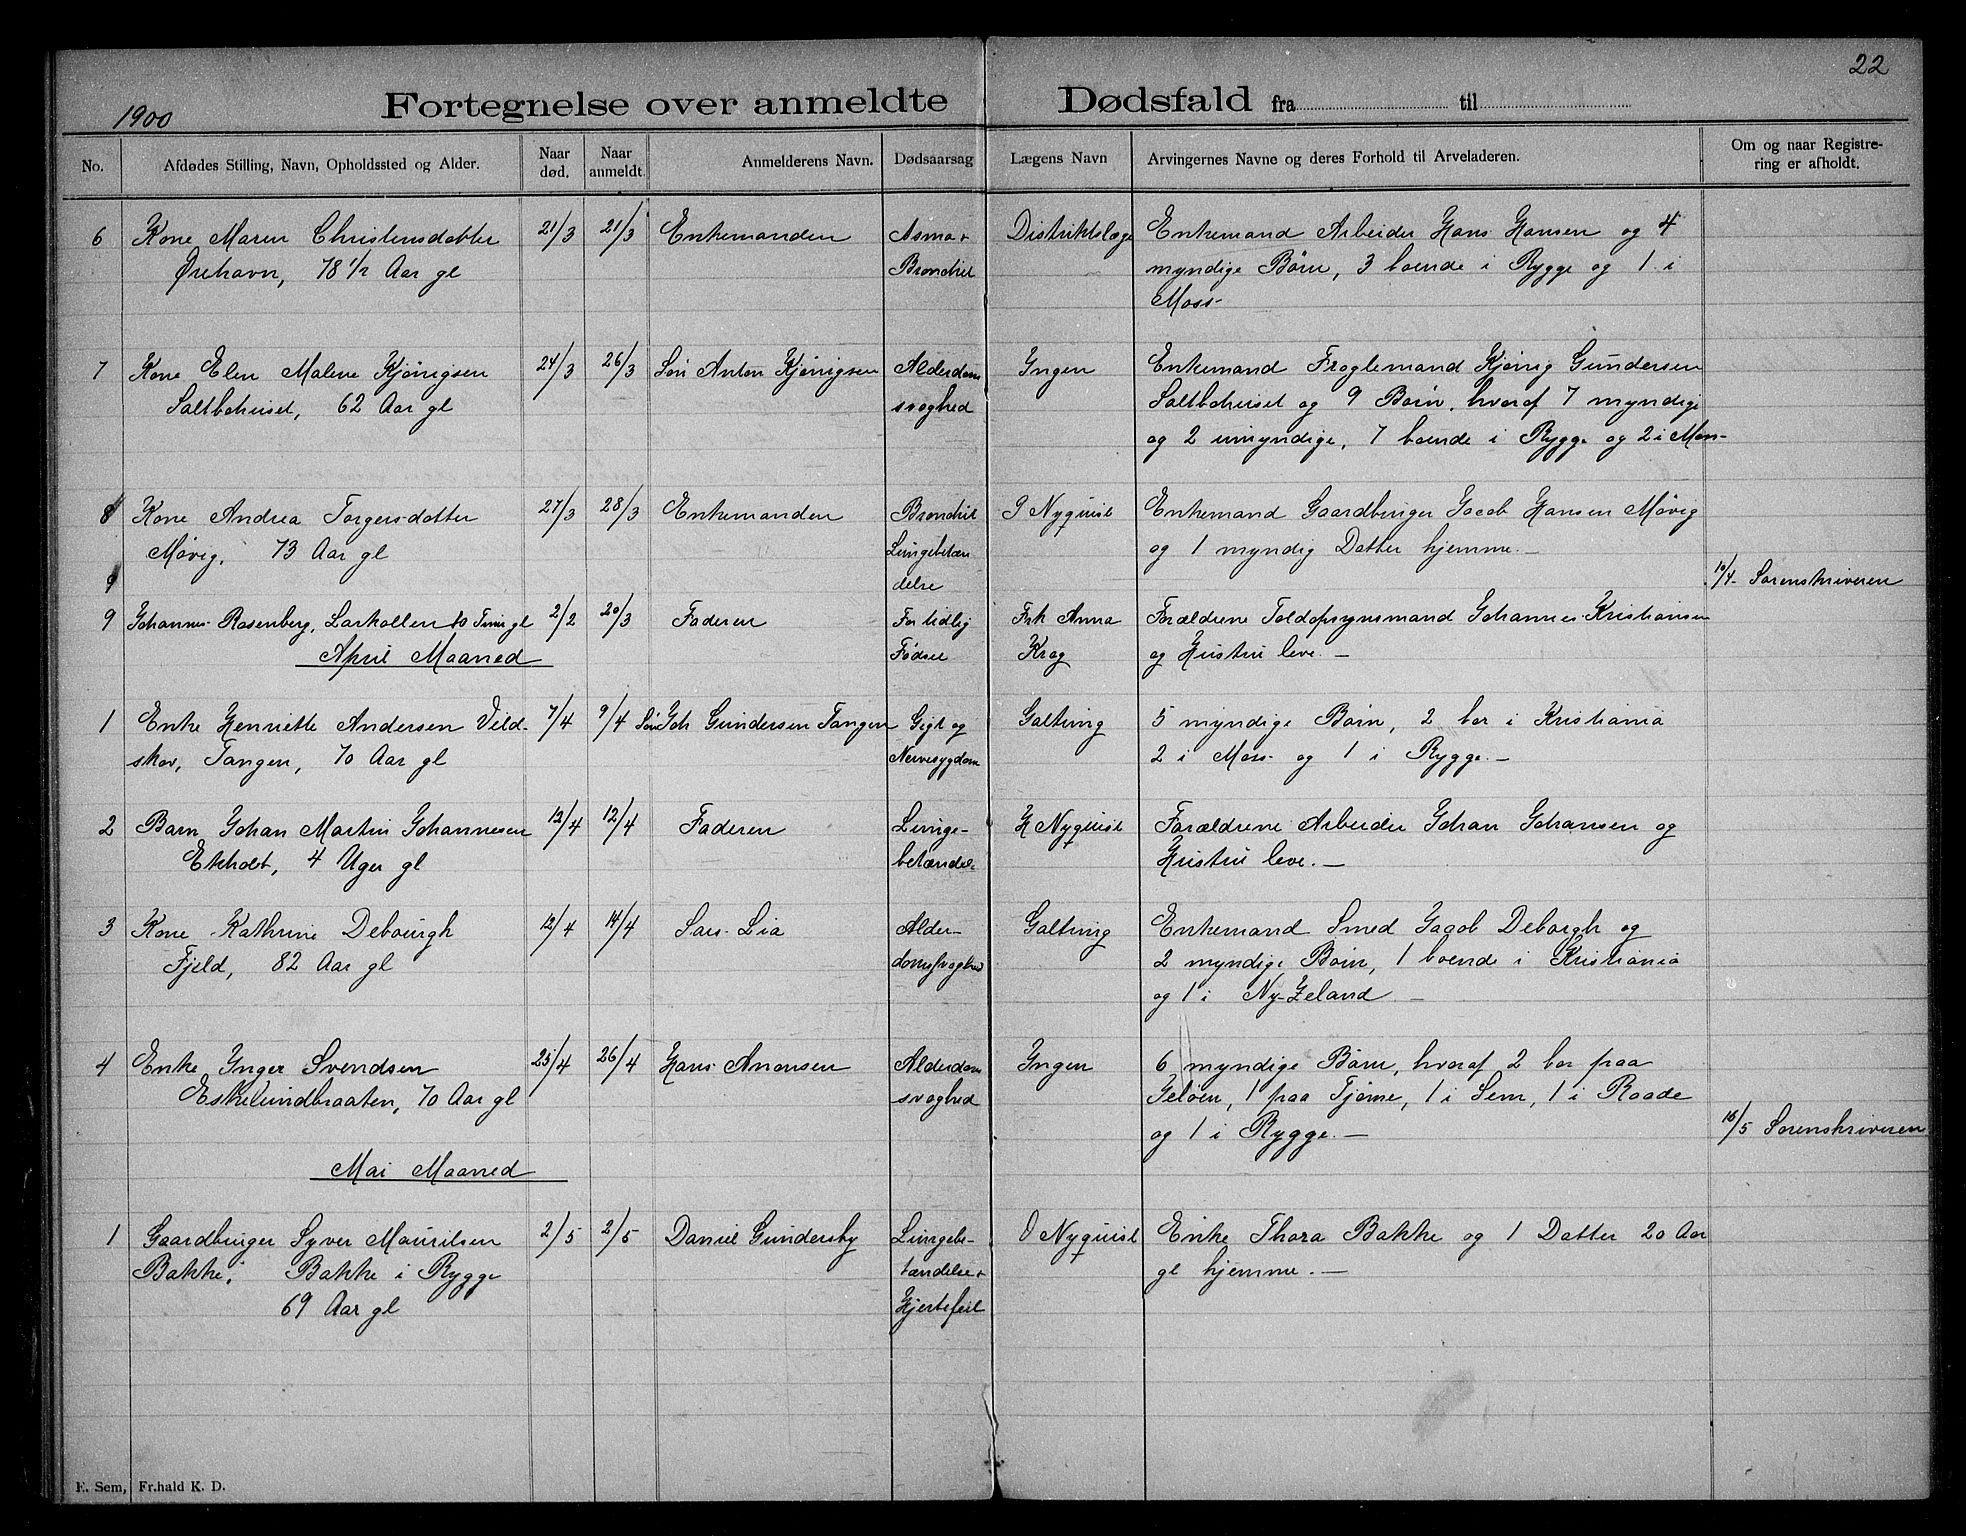 22
1900
Fortegnelse over anmeldte Dødsfald fra til
No. Afdødes Stilling, Navn, Opholdssted og Alder. Naar død. Naar anmeldt. Anmelderens Navn. Dødsaarsag Lægens Navn Arvingernes Navne og deres Forhold til Arveladeren. Om og naar Registrering er afholdt.
6 Kone Maren Christensdatter 21/3 21/3 Enkemanden Asma + Distriktslæge Enkemand Arbeider Hans Hansen og 4
Ørehavn, 78 1/2 Aar gl Bronchit myndige Børn, 3 boende i Rygge og 1 i
Moss
7 Kone Elen Malene Kjønigsen 24/3 26/3 Søn Anton Kjønigsen Alderdoms Ingen Enkemand Kjønig Gundersen
Saltbohuset, 62 Aar gl svaghed Saltbohuset og 9 Børn, hvoraf 7 myndige
og 2 umyndige, 7 boende i Rygge og 2 i Moss
8 Kone Andrea Torgersdatter 27/3 28/3 Enkemanden Bronchit Nyquist Enkemand Gaardbruger Jacob Hansen Møvig
Møvig, 73 Aar gl Lungebetæn og 1 myndig Datter hjemme. –
9 delse 10/4 Sorenskriveren
9 Johannes Rosenberg, Larkollen 10 Timer gl 2/2 20/3 Faderen For tidlig Frk Anna Forældrene Toldopsynsmand Johannes Kristiansen
April Maaned Fødsel Krog og Hustru leve. –
1 Enke Henriette Andersen Vild- 7/4 9/4 Søn Joh Gundersen Tangen Gigt og Galtung 5 myndige Børn, 2 bor i Kristiania
skov, Tangen, 70 Aar gl Nervesygdom 2 i Moss og 1 i Rygge. –
2 Barn Johan Martin Johannesen 12/4 12/4 Faderen Lunge- H Nyquist Forældrene Arbeider Johan Johansen og
Ekholt, 4 Uger gl betændel- Hustru leve. –
3 Kone Kathrine Debourgh 12/4 14/4 Lars Lia Alder- Galtung Enkemand Smed Jacob Deborgh og
Fjeld, 82 Aar gl domssvaghed 2 myndige Børn, 1 boende i Kristiania
og 1 i Ny-Zeland –
4 Enke Inger Svendsen 25/4 26/4 Hans Anonsen Alderdoms Ingen 6 myndige Børn, hvoraf 2 bor paa
Eskelundbraaten, 70 Aar gl svaghed Jeløen, 1 paa Tjøme, 1 i Sem, 1 i Raade
og 1 i Rygge. – 16/5 Sorenskriveren
Mai Maaned
1 Gaardbruger Syver Mouritsen 2/5 2/5 Daniel Gundersby Lungebe- O Nyquist Enke Thora Bakke og 1 Datter 20 Aar
Bakke, Bakke i Rygge tændelse + gl hjemme. –
69 Aar gl Hjertefeil
E. Sem, Fr.hald K. D.